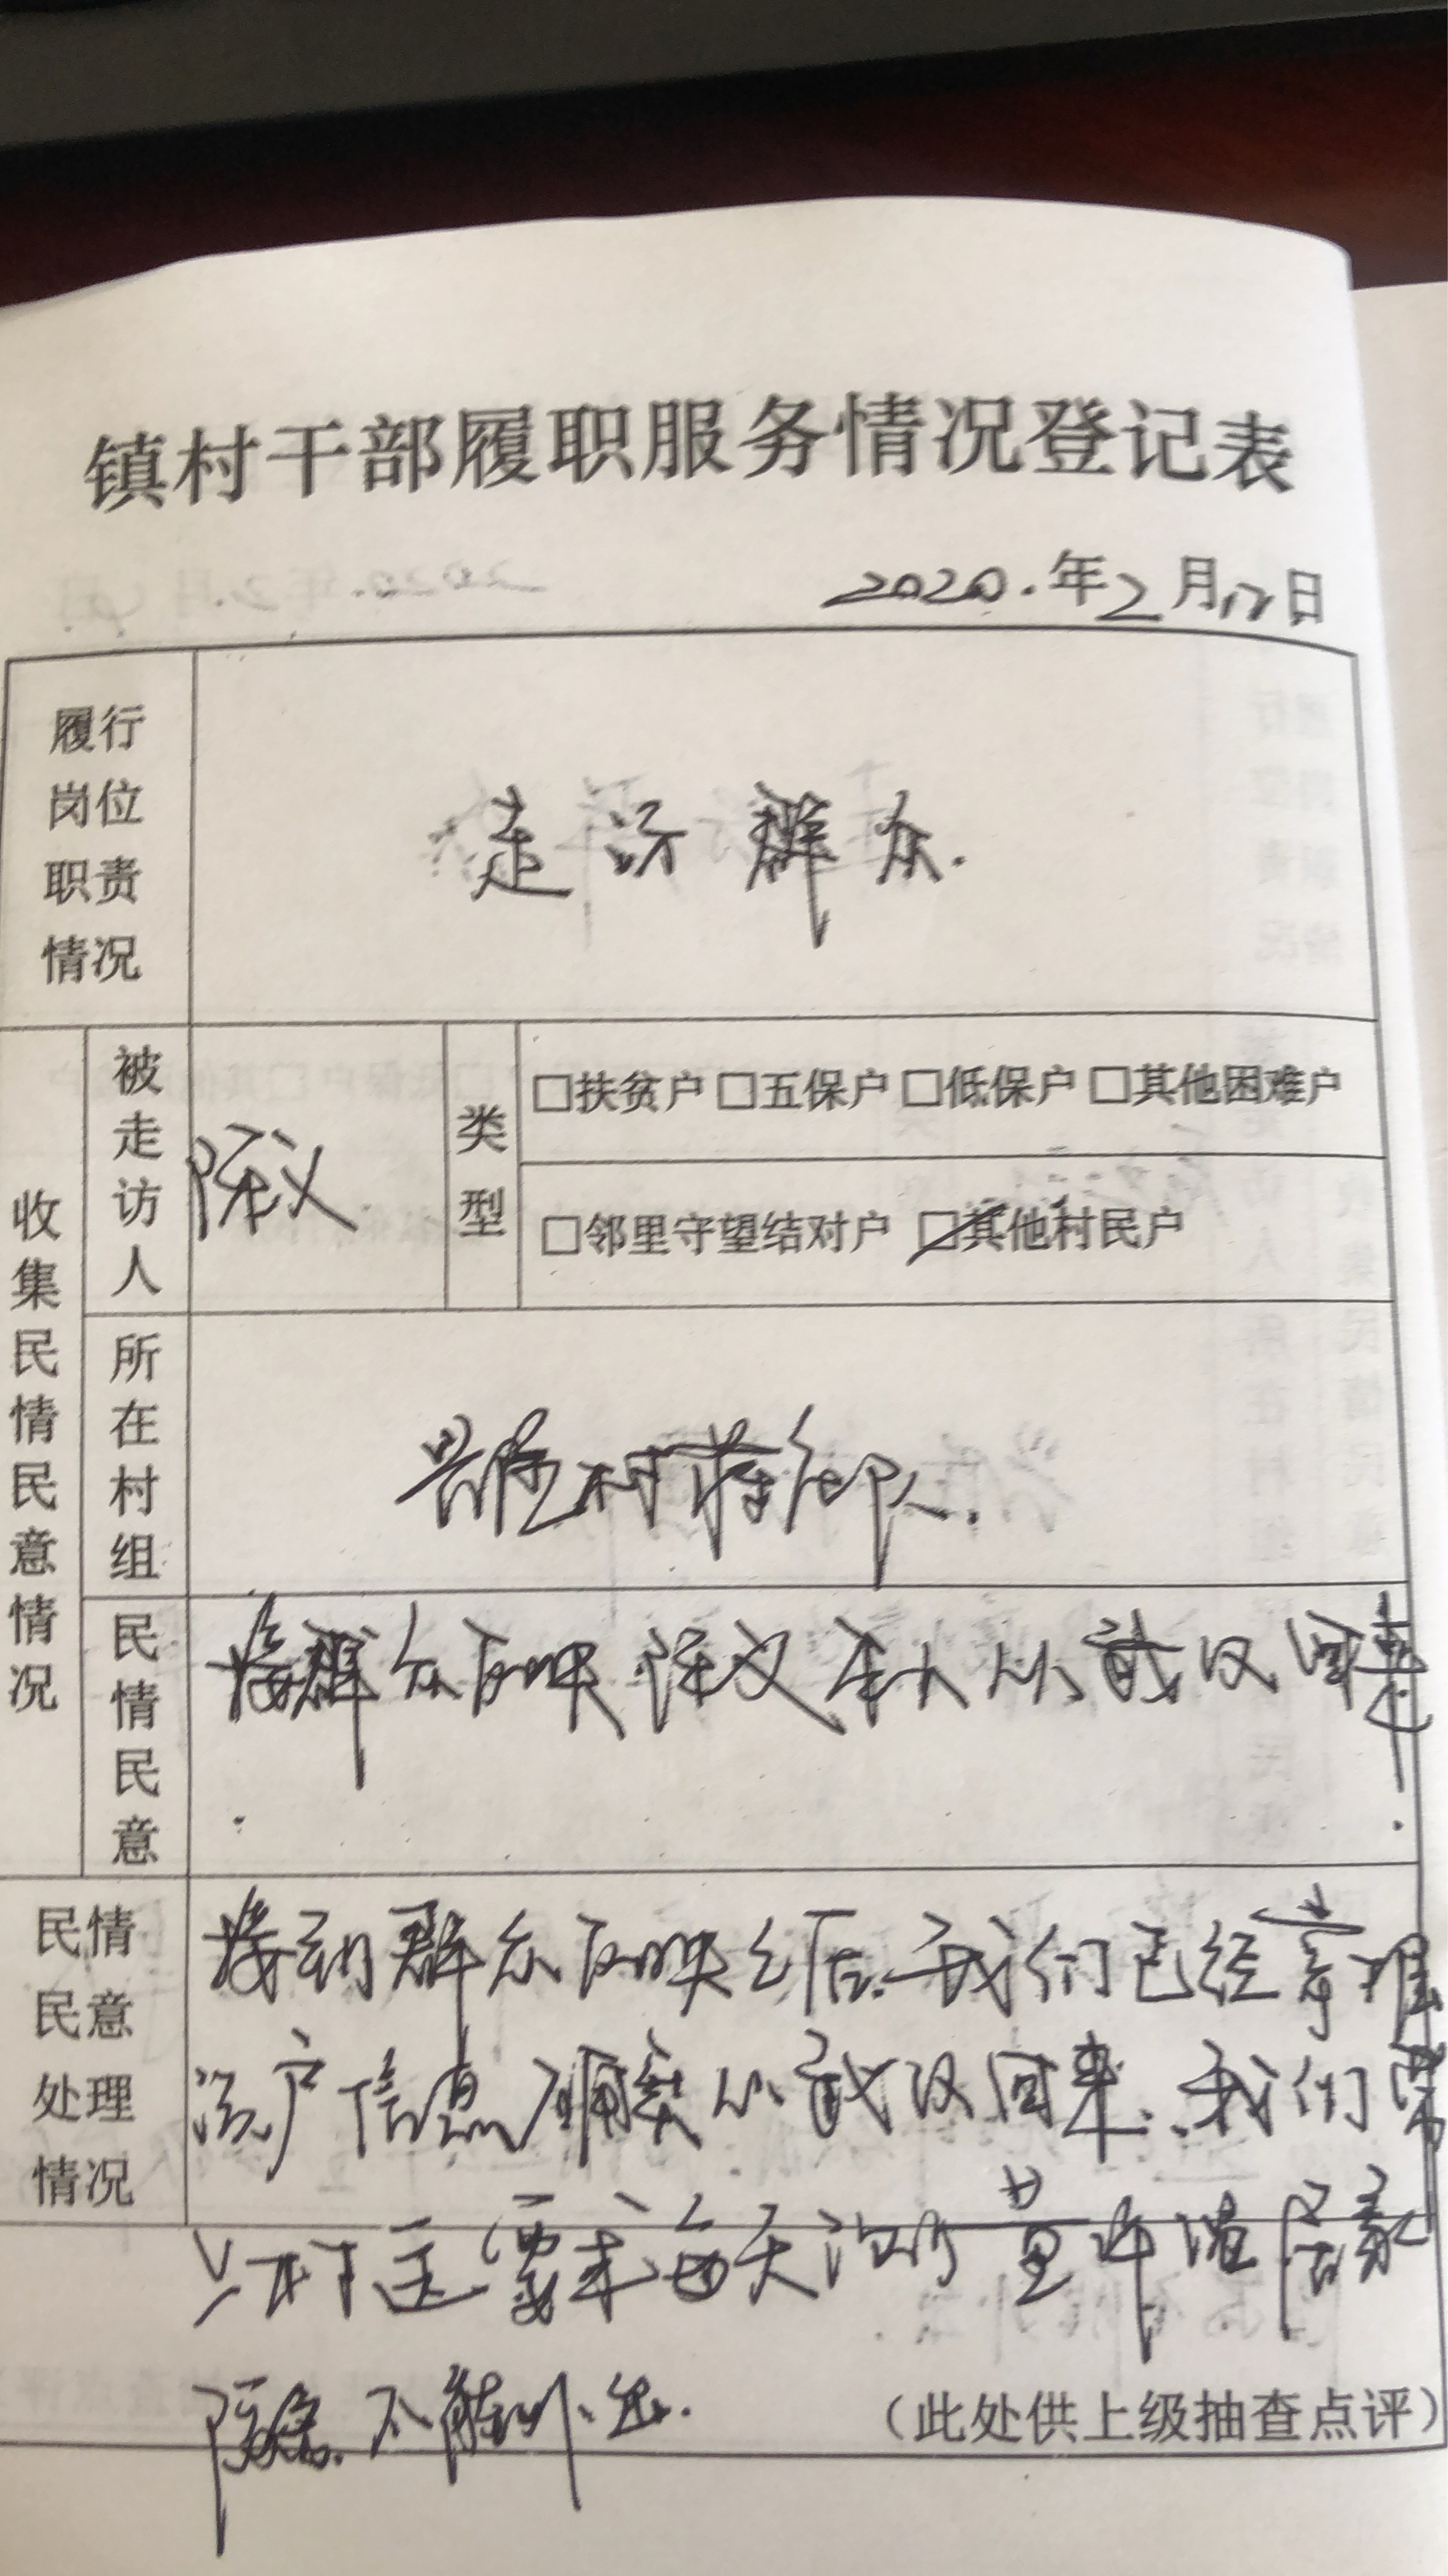 镇村干部履职服务情况登记表
2020.年2月12日
履行岗位职责情况
走访群众.
收集民情民意情况
被走访人
陈义
类型
□扶贫户 □五保户 □低保户 □其他困难户
□邻里守望结对户 □其他村民户
所在村组
村
民情民意
接群众反映陈义本人从武汉回来
.
民情民意处理情况
接到群众反映之后.我们已经掌握
该户信息确实从武汉回来.我们
要求每天测量体温居家
隔离.不能外出.
（此处供上级抽查点评）